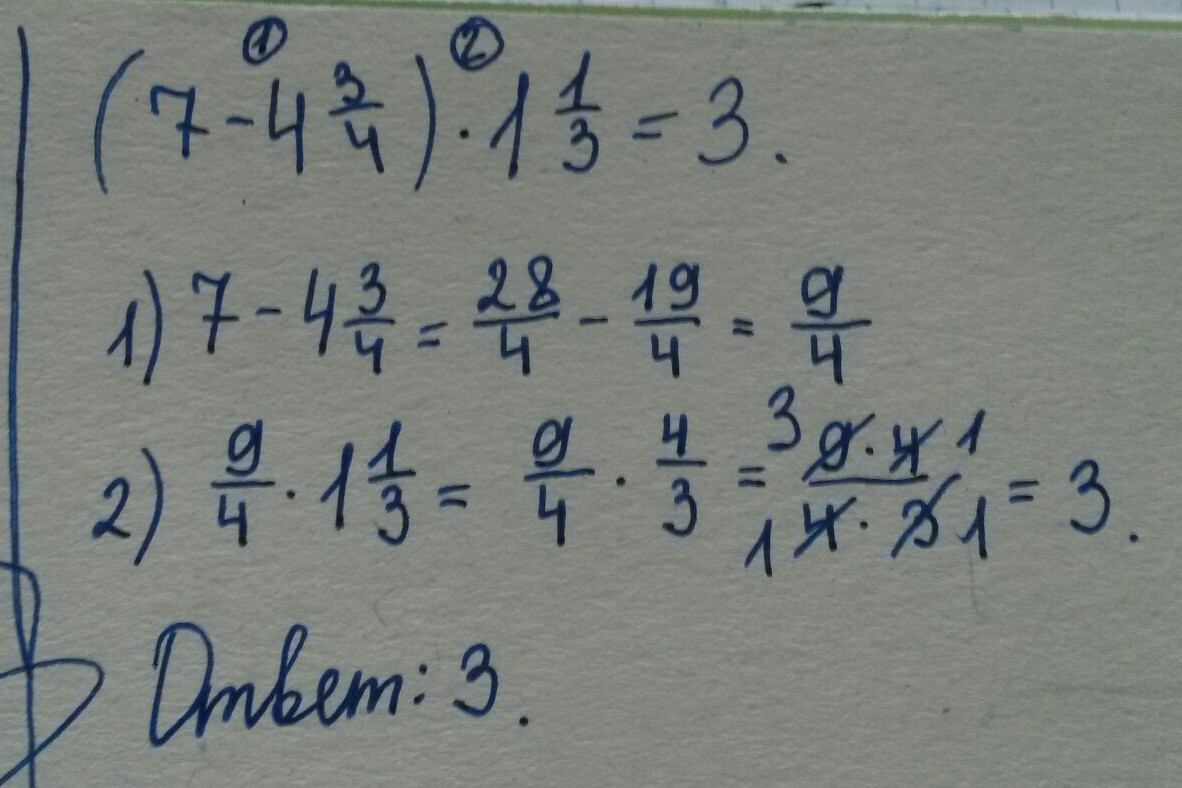 ① ②
(7 - 4 3/4) · 1 1/3 = 3.
1) 7 - 4 3/4 = 28/4 - 19/4 = 9/4
2) 9/4 · 1 1/3 = 9/4 · 4/3 = 3 9·4 1 / 1 4·3 1 = 3.
Ответ: 3.